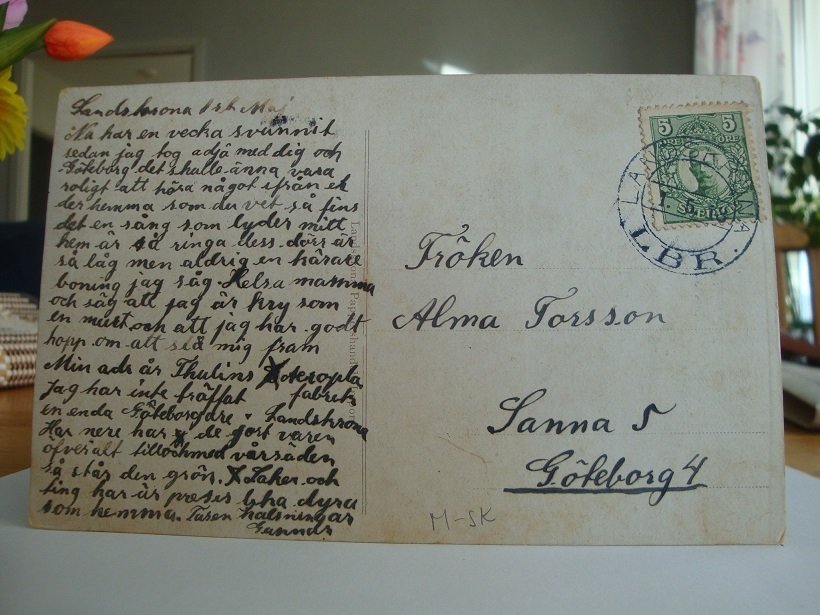 Landskrona 1st Maj
Nu har en vecka svunnit
sedan jag tog adjö med dig och
Göteborg det skulle änna vara
roligt att höra något ifrån er
der hemma som du vet så fins
det en sång som lyder mitt
hem är så ringa dess dörr är
så låg men aldrig en kärare
boning jag såg. Helsa mamma
och säg att jag är kry som
en mört och att jag har godt
hopp om att slå mig fram
Min adr är Thulins Aeropla
fabrik
Jag har inte träffat
en enda Göteborgare i Landskrona
Här nere har de gort våren
öfveralt till och med vårsäden
så står den grön. Saker och
ting här är presis lika dyra
som hemma. Tusen hälsningar
Gunnar
Fröken
Alma Torsson
Sanna 5
Göteborg 4
M-SK
5 5
ÖRE ÖRE
LBR.